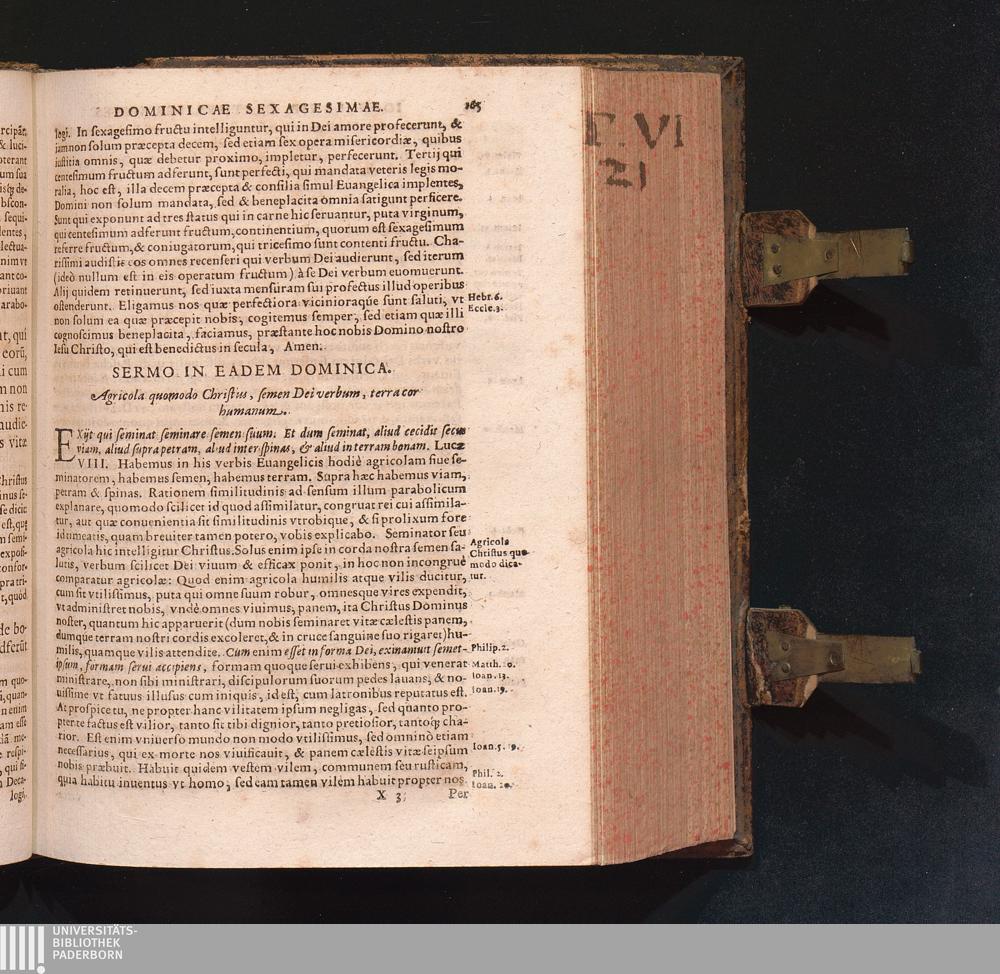 DOMINICAE SEXAGESIMAE. 165
logi. In ſexageſimo fructu intelliguntur, qui in Dei amore profecerunt, &
iam non ſolum præcepta decem, ſed etiam ſex opera miſericordiæ, quibus
iuſtitia omnis, quæ debetur proximo, impletur, perfecerunt. Tertij qui
centeſimum fructum adferunt, ſunt perfecti, qui mandata veteris legis mo-
ralia, hoc eſt, illa decem præcepta & conſilia ſimul Euangelica implentes,
Domini non ſolum mandata, ſed & beneplacita omnia ſatigunt perficere.
Sunt qui exponunt ad tres ſtatus qui in carne hic ſeruantur, puta virginum,
qui centeſimum adferunt fructum, continentium, quorum eſt sexageſimum
referre fructum, & coniugatorum, qui triceſimo ſunt contenti fructu. Cha-
riſſimi audiſtis eos omnes recenſeri qui verbum Dei audierunt, ſed iterum
(ideò nullum eſt in eis operatum fructum) à ſe Dei verbum euomuerunt.
Alij quidem retinuerunt, ſed iuxta menſuram ſui profectus illud operibus
oſtenderunt. Eligamus nos quæ perfectiora vicinioraqúe ſunt ſaluti, vt
non ſolum ea quæ præcepit nobis, cogitemus ſemper, ſed etiam quæ illi
cognoſcimus beneplacita, faciamus, præſtante hoc nobis Domino noſtro
Ieſu Chriſto, qui eſt benedictus in ſecula, Amen.
Hebr. 6.
Eccle. 3.
SERMO IN EADEM DOMINICA.
Agricola quomodo Chriſtus, ſemen Dei verbum, terra cor
humanum.
EXijt qui ſeminat ſeminare ſemen ſuum. Et dum ſeminat, aliud cecidit ſecus
viam, aliud ſupra petram, aliud inter ſpinas, & aliud in terram bonam. Lucæ
VIII. Habemus in his verbis Euangelicis hodiè agricolam ſiue ſe-
minatorem, habemus ſemen, habemus terram. Supra hæc habemus viam,
petram & ſpinas. Rationem ſimilitudinis ad ſenſum illum parabolicum
explanare, quomodo ſcilicet id quod aſſimilatur, congruat rei cui aſſimila-
tur, aut quæ conuenientia ſit ſimilitudinis vtrobique, & ſi prolixum fore
idumeatis, quam breuiter tamen potero, vobis explicabo. Seminator ſeu
agricola hic intelligitur Chriſtus. Solus enim ipſe in corda noſtra ſemen ſa-
lutis, verbum ſcilicet Dei viuum & efficax ponit, in hoc non incongruè
comparatur agricolæ: Quod enim agricola humilis atque vilis ducitur,
cum ſit vtiliſſimus, puta qui omne ſuum robur, omnesque vires expendit,
vt adminiſtret nobis, vndè omnes viuimus, panem, ita Chriſtus Dominus
noſter, quantum hic apparuerit (dum nobis ſeminaret vitæ cæleſtis panem,
dumque terram noſtri cordis excoleret, & in cruce ſanguine ſuo rigaret) hu-
milis, quamque vilis attendite. Cum enim eſſet in forma Dei, exinaniuit ſemet-
ipſum, formam ſerui accipiens, formam quoque ſerui exhibens, qui venerat
miniſtrare, non ſibi miniſtrari, diſcipulorum ſuorum pedes lauans, & no-
uiſſime vt fatuus illuſus cum iniquis, id eſt, cum latronibus reputatus eſt.
At proſpice tu, ne propter hanc vilitatem ipſum negligas, ſed quanto pro-
pter te factus eſt vilior, tanto ſit tibi dignior, tanto pretioſior, tantoq́; cha-
rior. Eſt enim vniuerſo mundo non modo vtiliſſimus, ſed omninò etiam
neceſſarius, qui ex morte nos viuificauit, & panem cæleſtis vitæ ſeipſum
nobis præbuit. Habuit quidem veſtem vilem, communem ſeu ruſticam,
quia habitu inuentus vt homo, ſed eam tamen vilem habuit propter nos.
X 3 Per
Agricola
Chriſtus quo
modo dica-
tur.
Philip. 2.
Matth. 20.
Ioan. 13.
Ioan. 19.
Ioan. 5.
Phil. 2.
Ioan.
VI
21
UNIVERSITÄTS-
BIBLIOTHEK
PADERBORN